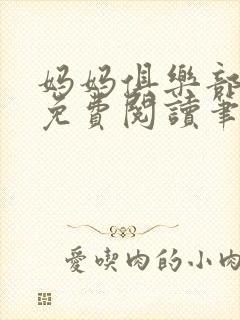 妈妈俱樂部
免費閱讀筆
愛喫肉的小肉